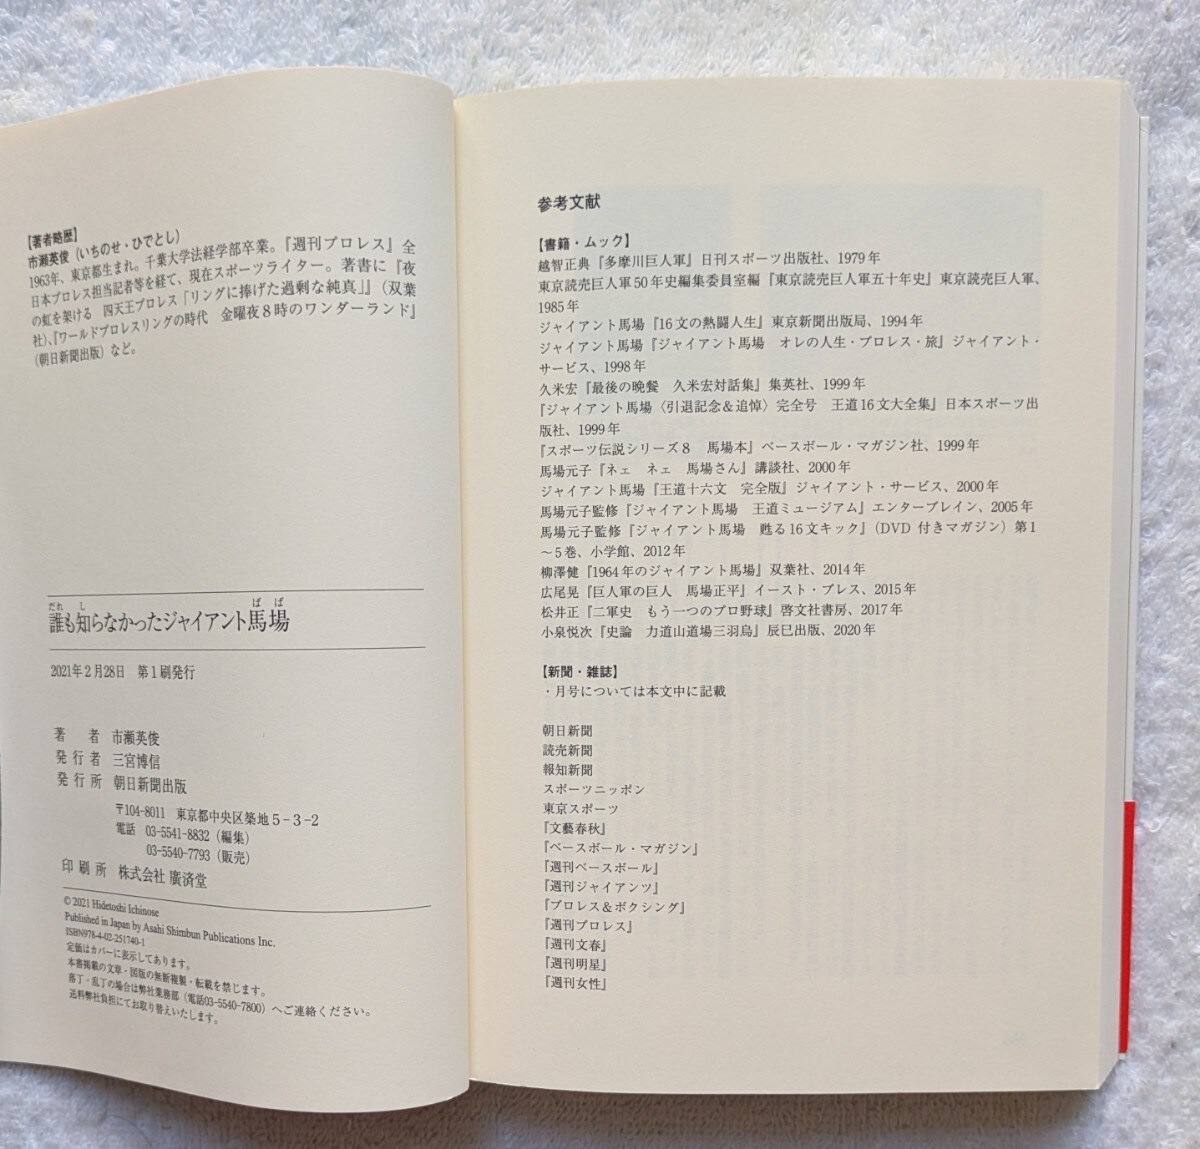 【著者略歴】
市瀬英俊（いちのせ・ひでとし）
1963年、東京都生まれ。千葉大学法経学部卒業。『週刊プロレス』全
日本プロレス担当記者等を経て、現在スポーツライター。著書に『夜
の虹を架ける　四天王プロレス「リングに捧げた過剰な純真」』（双葉
社）、『ワールドプロレスリングの時代　金曜夜８時のワンダーランド』
（朝日新聞出版）など。
だれ　し　ば　ば
誰も知らなかったジャイアント馬場
2021年２月28日　第１刷発行
著　者　市瀬英俊
発行者　三宮博信
発行所　朝日新聞出版
〒104-8011　東京都中央区築地５-３-２
電話　03-5541-8832（編集）
03-5540-7793（販売）
印刷所　株式会社 廣済堂
© 2021 Hidetoshi Ichinose
Published in Japan by Asahi Shimbun Publications Inc.
ISBN978-4-02-251740-1
定価はカバーに表示してあります。
本書掲載の文章・図版の無断複製・転載を禁じます。
落丁・乱丁の場合は弊社業務部（電話03-5540-7800）へご連絡ください。
送料弊社負担にてお取り替えいたします。
参考文献
【書籍・ムック】
越智正典『多摩川巨人軍』日刊スポーツ出版社、1979年
東京読売巨人軍50年史編集委員室編『東京読売巨人軍五十年史』東京読売巨人軍、
1985年
ジャイアント馬場『16文の熱闘人生』東京新聞出版局、1994年
ジャイアント馬場『ジャイアント馬場　オレの人生・プロレス・旅』ジャイアント・
サービス、1998年
久米宏『最後の晩餐　久米宏対話集』集英社、1999年
『ジャイアント馬場〈引退記念＆追悼〉完全号　王道16文大全集』日本スポーツ出
版社、1999年
『スポーツ伝説シリーズ８　馬場本』ベースボール・マガジン社、1999年
馬場元子『ネェ　ネェ　馬場さん』講談社、2000年
ジャイアント馬場『王道十六文　完全版』ジャイアント・サービス、2000年
馬場元子監修『ジャイアント馬場　王道ミュージアム』エンターブレイン、2005年
馬場元子監修『ジャイアント馬場　甦る16文キック』（DVD 付きマガジン）第１
～５巻、小学館、2012年
柳澤健『1964年のジャイアント馬場』双葉社、2014年
広尾晃『巨人軍の巨人　馬場正平』イースト・プレス、2015年
松井正『二軍史　もう一つのプロ野球』啓文社書房、2017年
小泉悦次『史論　力道山道場三羽烏』辰巳出版、2020年
【新聞・雑誌】
・月号については本文中に記載
朝日新聞
読売新聞
報知新聞
スポーツニッポン
東京スポーツ
『文藝春秋』
『ベースボール・マガジン』
『週刊ベースボール』
『週刊ジャイアンツ』
『プロレス＆ボクシング』
『週刊プロレス』
『週刊文春』
『週刊明星』
『週刊女性』